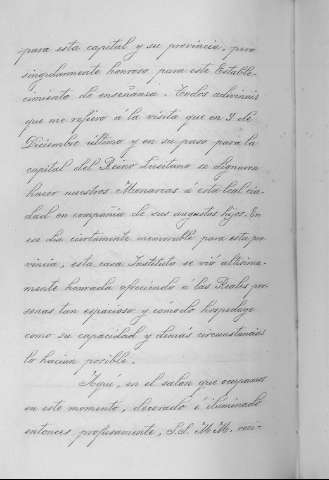 para esta capital y su provincia, pero
singularmente honroso para este Estable-
cimiento de enseñanza. Todos adivinais
que me refiero á la visita que en 9 de
Diciembre último y en su paso para la
capital del Reino Lusitano se dignaron
hacer nuestros Monarcas á esta leal ciu-
dad en compañía de sus augustos hijos. En
ese dia ciertamente memorable para esta pro-
vincia, esta casa Instituto se vió altísima-
mente honrada ofreciendo á las Reales per-
sonas tan espacioso y cómodo hospedage
como su capacidad y demás circunstancias
lo hacian posible.
Aquí, en el salon que ocupamos
en este momento, decorado é iluminado
entonces profusamente, S.S. M.M. reci-